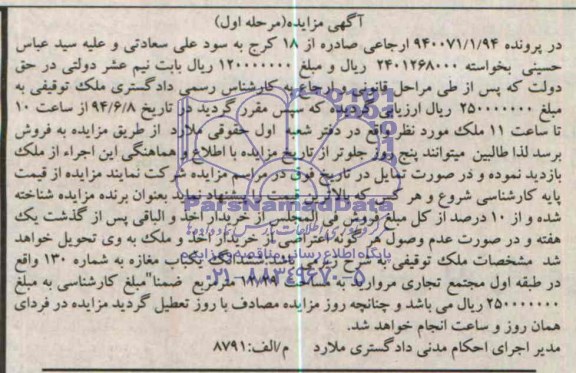 آگهی مزایده(مرحله اول)
در پرونده ۹۴۰۰۷۱/۱/۹۴ ارجاعی صادره از ۱۸ کرج به سود علی سعادتی و علیه سید عباس
حسینی بخواسته ۲۴۰۱۲۶۸۰۰۰ ریال و مبلغ ۱۲۰۰۰۰۰۰۰ ریال بابت نیم عشر دولتی در حق
دولت که پس از طی مراحل قانونی و ارجاع به کارشناس رسمی دادگستری ملک توقیفی به
مبلغ ۲۵۰۰۰۰۰۰۰۰ ریال ارزیابی گردیده که سپس مقرر گردید در تاریخ ۹۴/۶/۸ از ساعت ۱۰
تا ساعت ۱۱ ملک مورد نظر واقع در دفتر شعبه اول حقوقی ملارد از طریق مزایده به فروش
برسد لذا طالبین میتوانند پنج روز جلوتر از تاریخ مزایده با اطلاع و هماهنگی این اجراء از ملک
بازدید نموده و در صورت تمایل در تاریخ فوق در مراسم مزایده شرکت نمایند مزایده از قیمت
پایه کارشناسی شروع و هر کسی که بالاترین قیمت را پیشنهاد نماید بعنوان برنده مزایده شناخته
شده و از ۱۰ درصد از کل مبلغ فروش فی المجلس از خریدار اخذ و الباقی پس از گذشت یک
هفته و در صورت عدم وصول هر گونه اعتراضی از خریدار اخذ و ملک به وی تحویل خواهد
شد مشخصات ملک توقیفی به شرح ششدانگ یکباب مغازه به شماره ۱۳۰ واقع
در طبقه اول مجتمع تجاری مروارید به مساحت مترمربع ضمنا"مبلغ کارشناسی به مبلغ
۲۵۰۰۰۰۰۰۰۰ ریال می باشد و چنانچه روز مزایده مصادف با روز تعطیل گردید مزایده در فردای
همان روز و ساعت انجام خواهد شد.
مدیر اجرای احکام مدنی دادگستری ملارد م/الف:۸۷۹۱
ParsNamadData
پایگاه اطلاع رسانی مناقصه و مزایده
۰۲۱-۸۸۳۴۹۶۷۰-۵